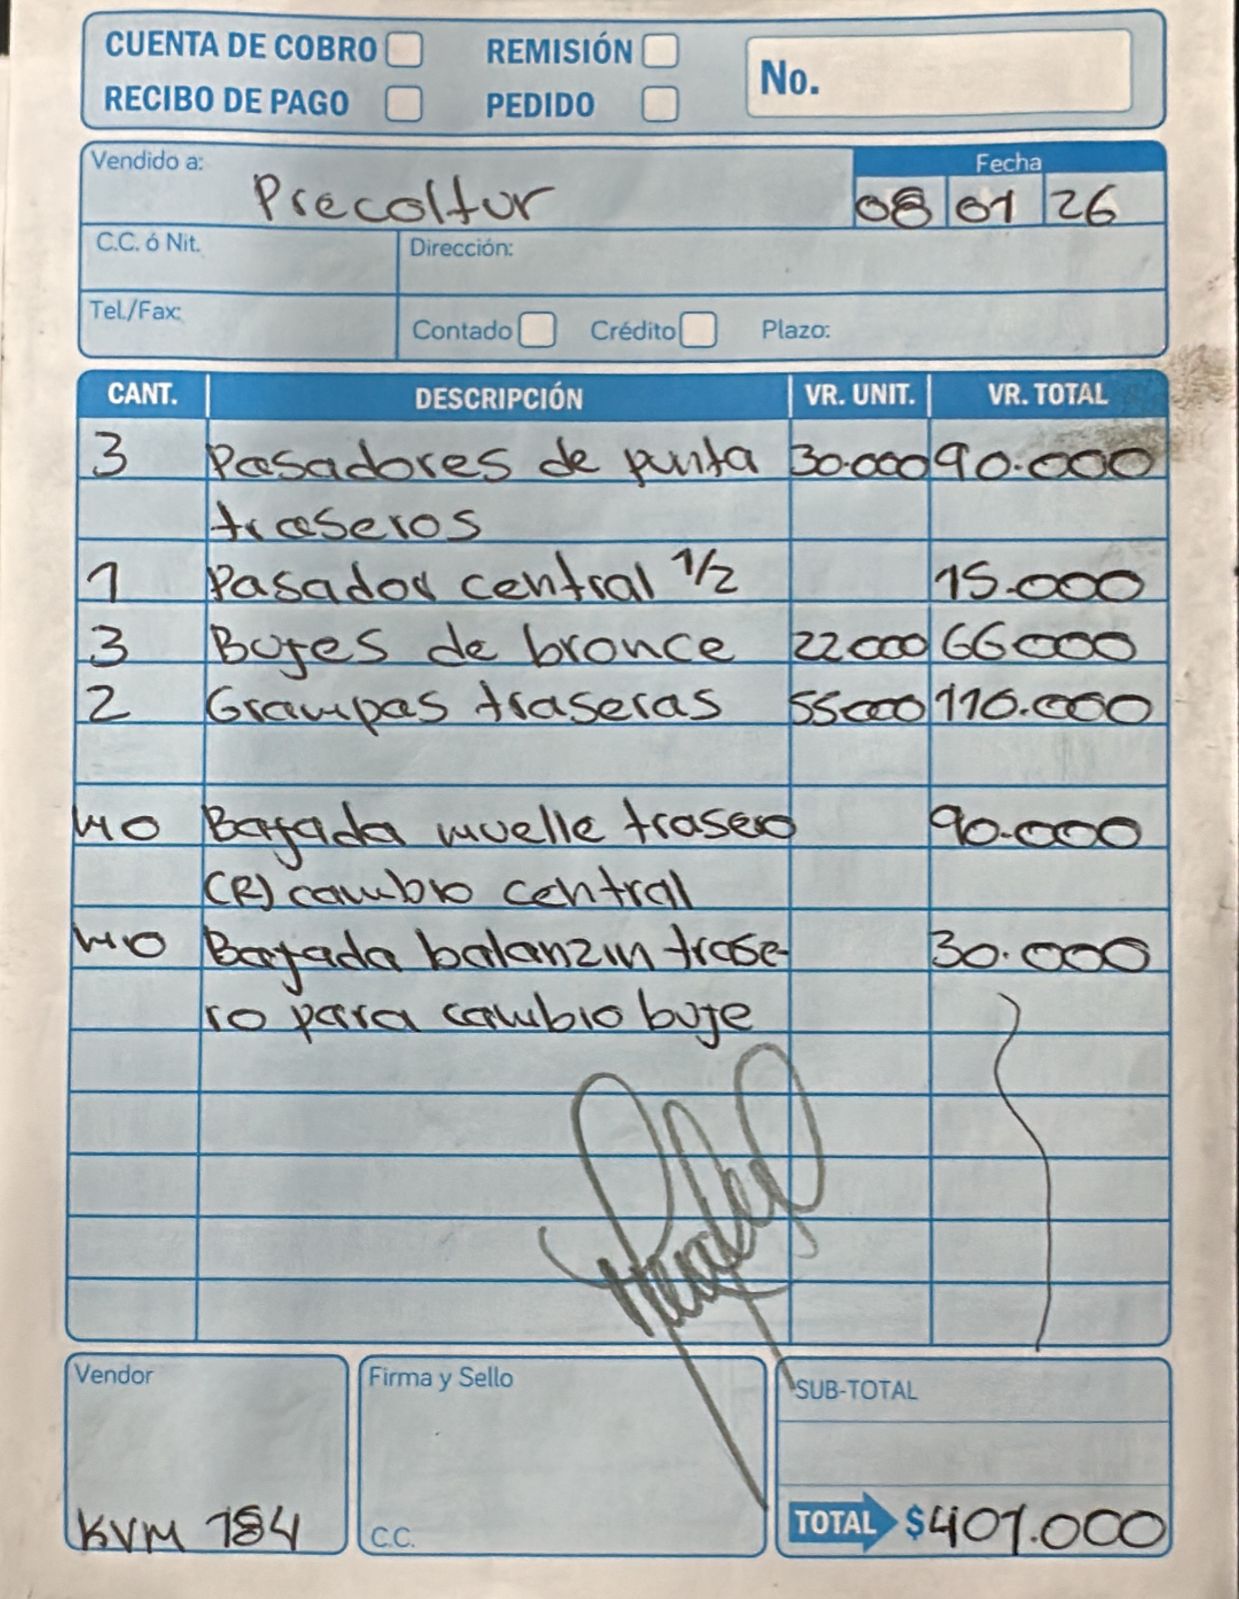 CUENTA DE COBRO REMISIÓN No.
RECIBO DE PAGO PEDIDO
Vendido a: Precoltur Fecha
08 01 26
C.C. ó Nit. Dirección:
Tel./Fax: Contado Crédito Plazo:
CANT. DESCRIPCIÓN VR. UNIT. VR. TOTAL
3 Pasadores de punta 30.000 90.000
traseros
1 Pasador central 1/2 15.000
3 Bujes de bronce 22000 66000
2 Grampas traseras 55000 110.000
MO Bajada muelle trasero 90.000
(R) cambio central
MO Bajada balanzin trase- 30.000
ro para cambio buje
Vendor Firma y Sello SUB-TOTAL
KVM 184 C.C. TOTAL $401.000